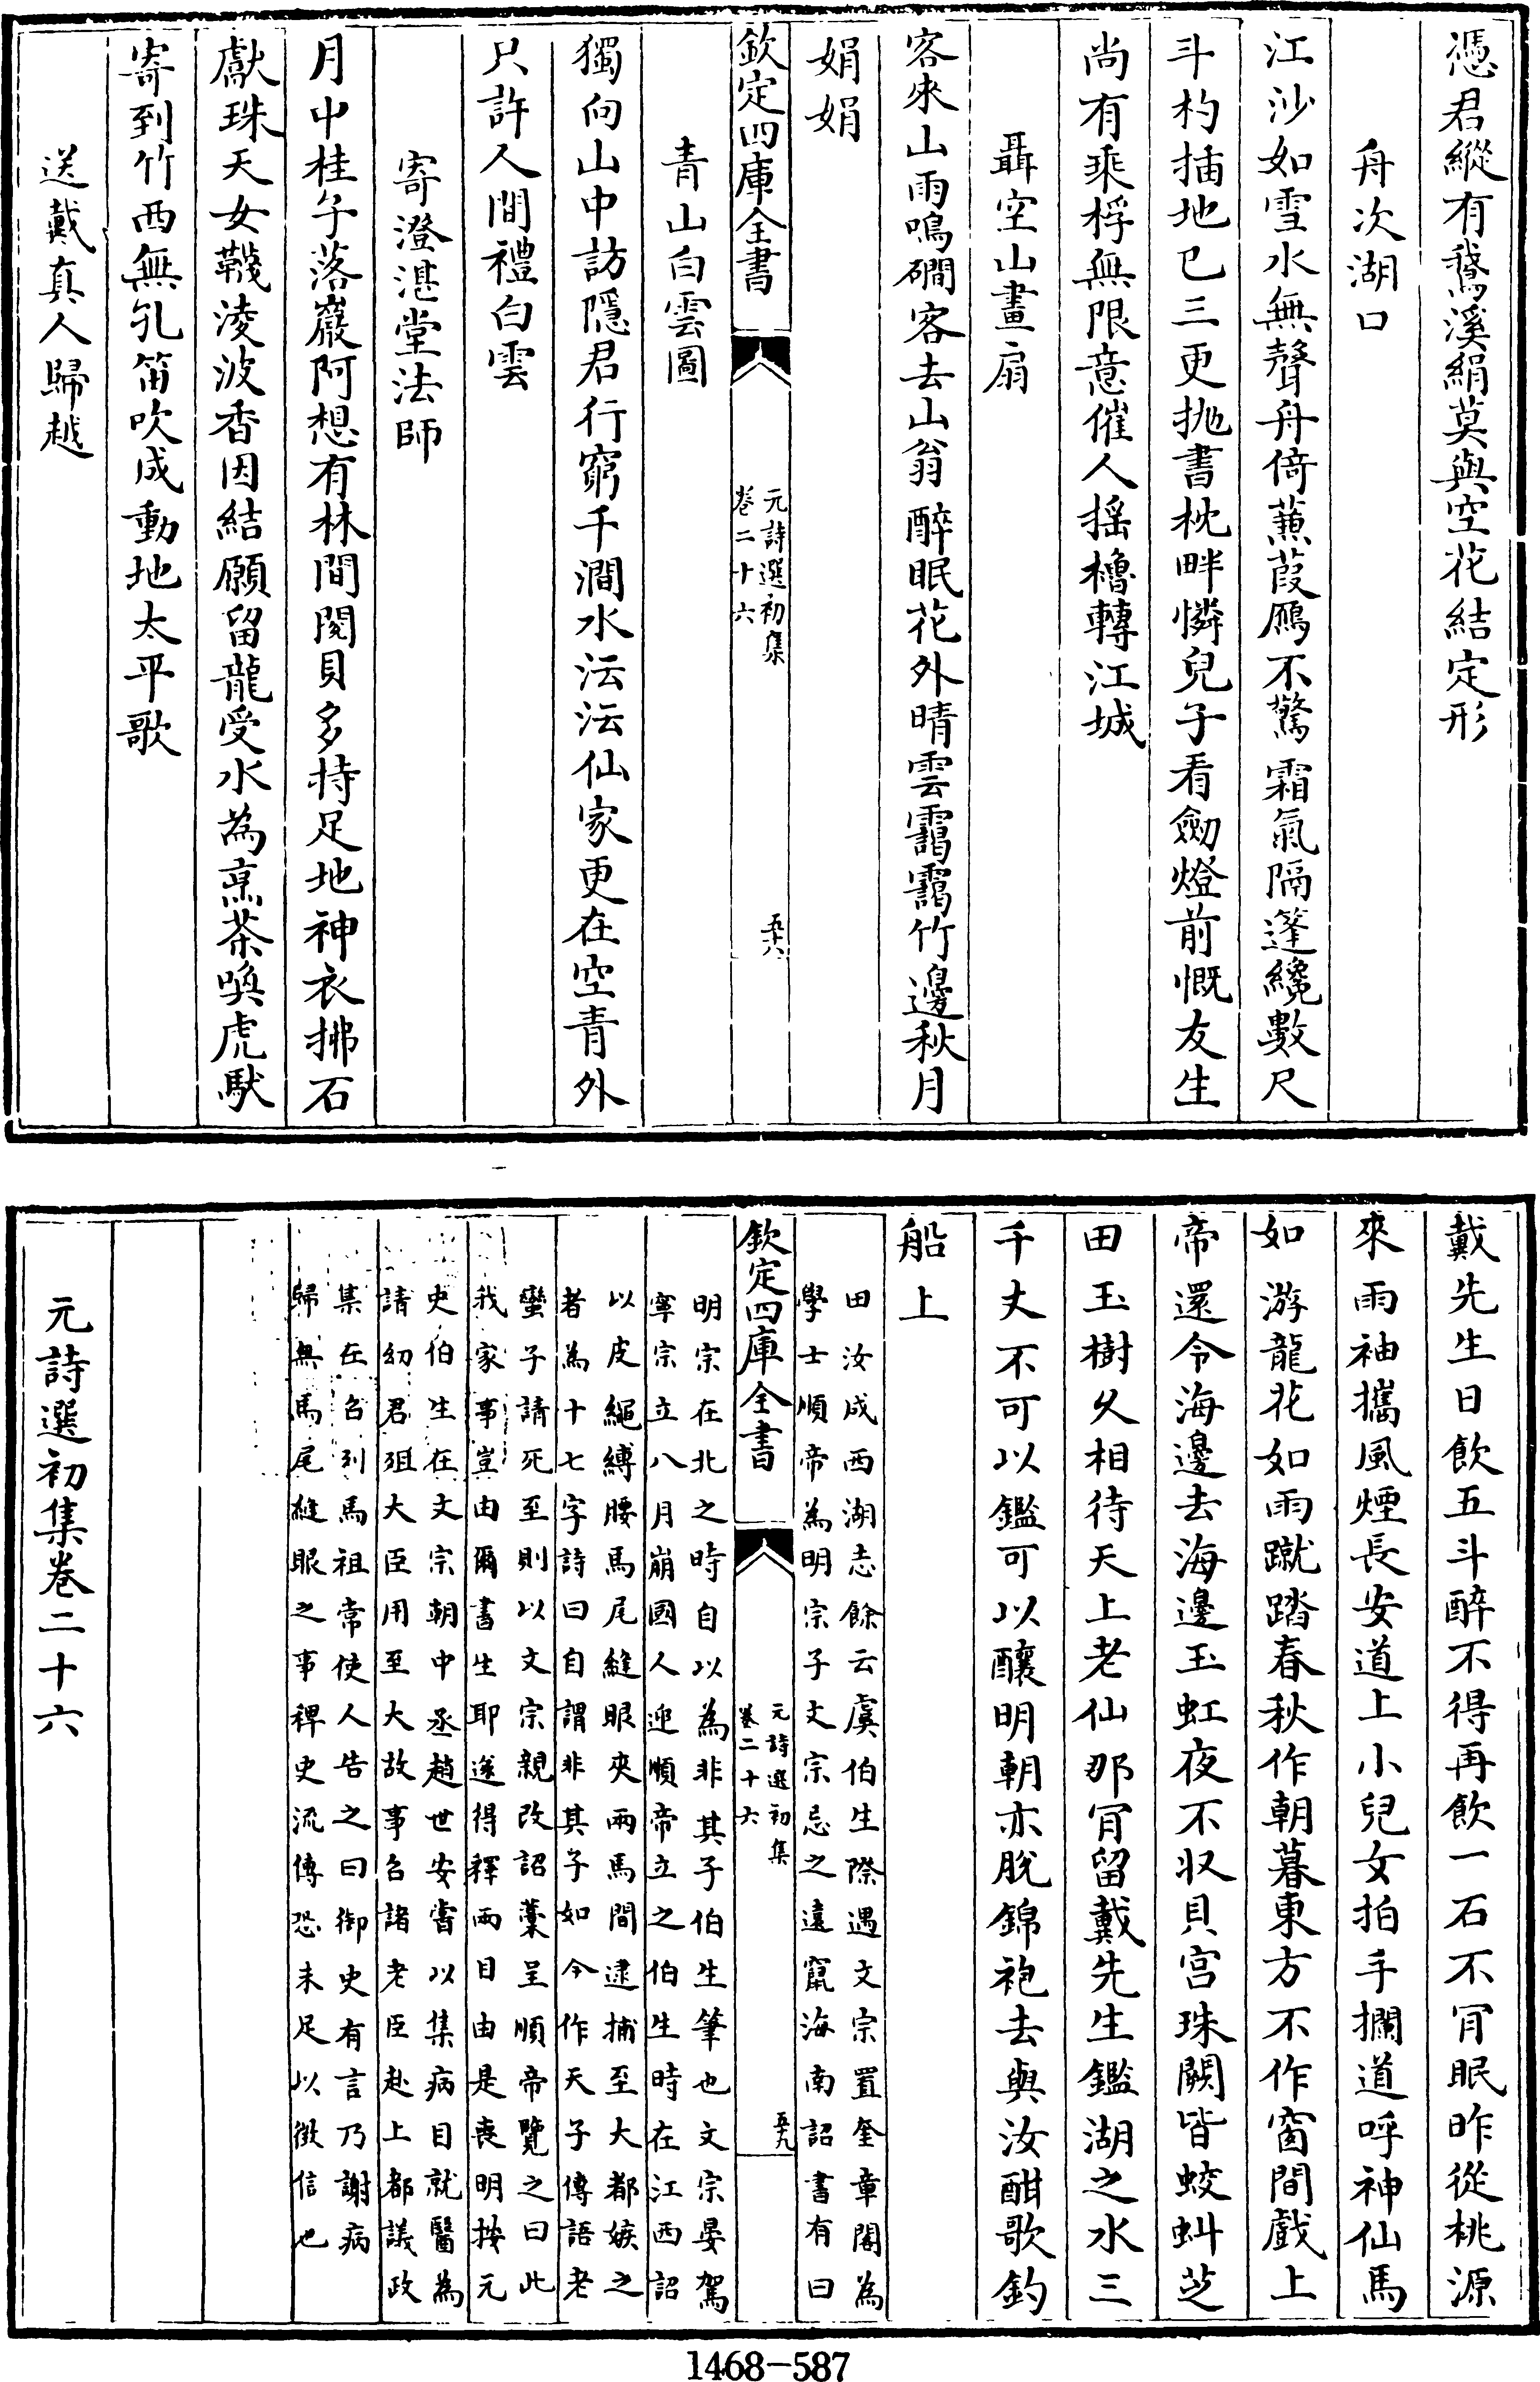 憑君縱有鵞溪絹莫與空花結定形
舟次湖口
江沙如雪水無聲舟倚蒹葭鴈不驚霜氣隔篷纔數尺
斗杓插地已三更抛書枕畔憐兒子看劒燈前慨友生
尚有乘桴無限意催人揺櫓轉江城
聶空山畫扇
客來山雨鳴磵客去山翁醉眠花外晴雲靄靄竹邊秋月
娟娟
欽定四庫全書
元詩選初集
卷二十六
五八
青山白雲圖
獨向山中訪隱君行窮千澗水沄沄仙家更在空青外
只許人間禮白雲
寄澄湛堂法師
月中桂子落巖阿想有林間閱貝多持足地神衣拂石
獻珠天女韈淩波香因結願留龍受水為烹茶喚虎馱
寄到竹西無孔笛吹成動地太平歌
送戴真人歸越
戴先生日飲五斗醉不得再飲一石不肎眠昨從桃源
來雨袖攜風煙長安道上小兒女拍手攔道呼神仙馬
如游龍花如雨蹴踏春秋作朝暮東方不作窗間戲上
帝還令海邊去海邊玉虹夜不收貝宫珠闕皆蛟虬芝
田玉樹久相待天上老仙那肎留戴先生鑑湖之水三
千丈不可以鑑可以釀明朝亦脫錦袍去與汝酣歌釣
船上
田汝成西湖志餘云虞伯生際遇文宗置奎章閣為
學士順帝為明宗子文宗忌之遠竄海南詔書有曰
欽定四庫全書
元詩選初集
卷二十六
五九
明宗在北之時自以為非其子伯生筆也文宗晏駕
寧宗立八月崩國人迎順帝立之伯生時在江西詔
以皮繩縛腰馬尾縫眼夾兩馬間逮捕至大都嫉之
者為十七字詩曰自謂非其子如今作天子傳語老
蠻子請死至則以文宗親改詔藁呈順帝覽之曰此
我家事豈由爾書生耶遂得釋兩目由是喪明按元
史伯生在文宗朝中丞趙世安嘗以集病目就醫為
請幼君殂大臣用至大故事召諸老臣赴上都議政
集在召列馬祖常使人告之曰御史有言乃謝病
歸無馬尾縫眼之事稗史流傳恐未足以徵信也
元詩選初集卷二十六
1468-587